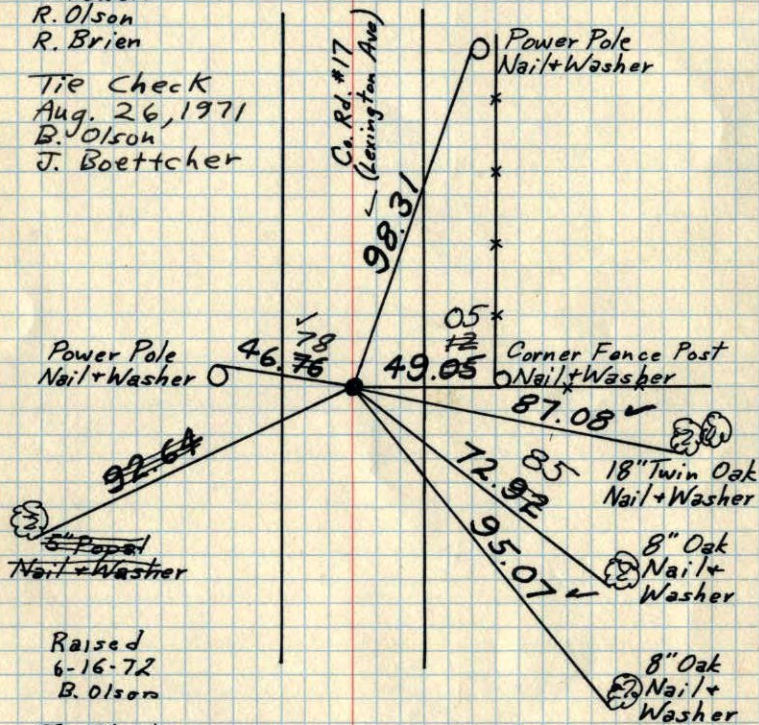 R. Olson
R. Brien
Tie Check
Aug. 26, 1971
B. Olson
J. Boettcher
Co. Rd. #17
(Lexington Ave)
Power Pole
Nail + Washer
98.31
Power Pole
Nail + Washer
78
46.76
05
12
49.05
Corner Fence Post
Nail + Washer
87.08 ✓
18" Twin Oak
Nail + Washer
92.64
5" Popal
Nail + Washer
85
72.92
8" Oak
Nail +
Washer
95.07 ✓
8" Oak
Nail +
Washer
Raised
6-16-72
B. Olson